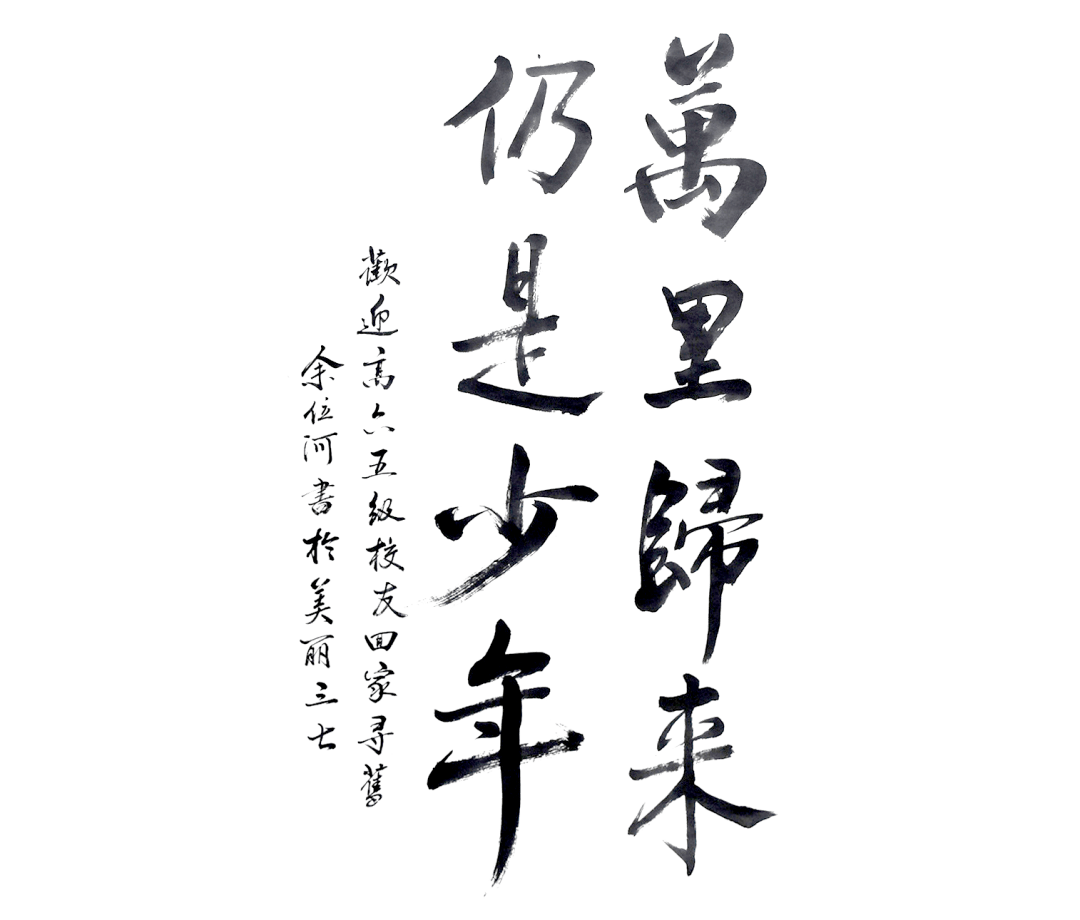 萬里歸来
仍是少年
歡迎高六五级校友回家寻舊
余位河書於美丽三七